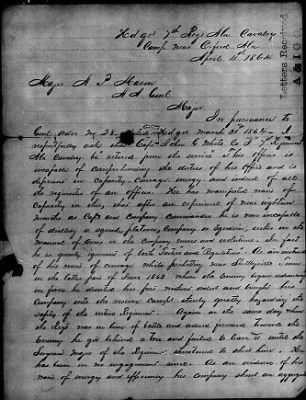 Hd qrs 7th Regt Ala Cavalry
Camp Near Oxford Ala
April 11th 1864
Letters Received
A & I G O
Major
A A Genl
Major
In pursuance to
Genl Order No Hd qrs March 1864 I
respectfully ask that Capt John C White Co F 7th Regiment
Ala Cavalry be retired from the service This officer is
incapable of comprehending the duties of his office and is
deficient in capacity, courage, energy and almost all
the requisites of an officer. He has manifested want of
capacity in this, that after an experience of near eighteen
months as Capt and Company Commander he is now incapable
of drilling a squad, platoon, Company or Squadron, either in the
Manual of Arms or the Company moves and evolutions. In fact
he is grossly ignorant of both Tactics and Regulations. As an evidence
of his want of courage while picketing near Shelbyville
the latter part of June 1863 when the Enemy began advancing
in force he deserted his post without orders and brought his
Company into the reserve camp, utterly regardless the
safety of the entire Regiment. Again on the same day when
the Regt was in line of battle and ordered forward toward the
Enemy he got behind a tree and failed to leave it until the
Sergeant Major of the Regiment threatened to shoot him. He
has been in no engagement since. As an evidence of his
want of energy and efficiency his Company shows an aggregate